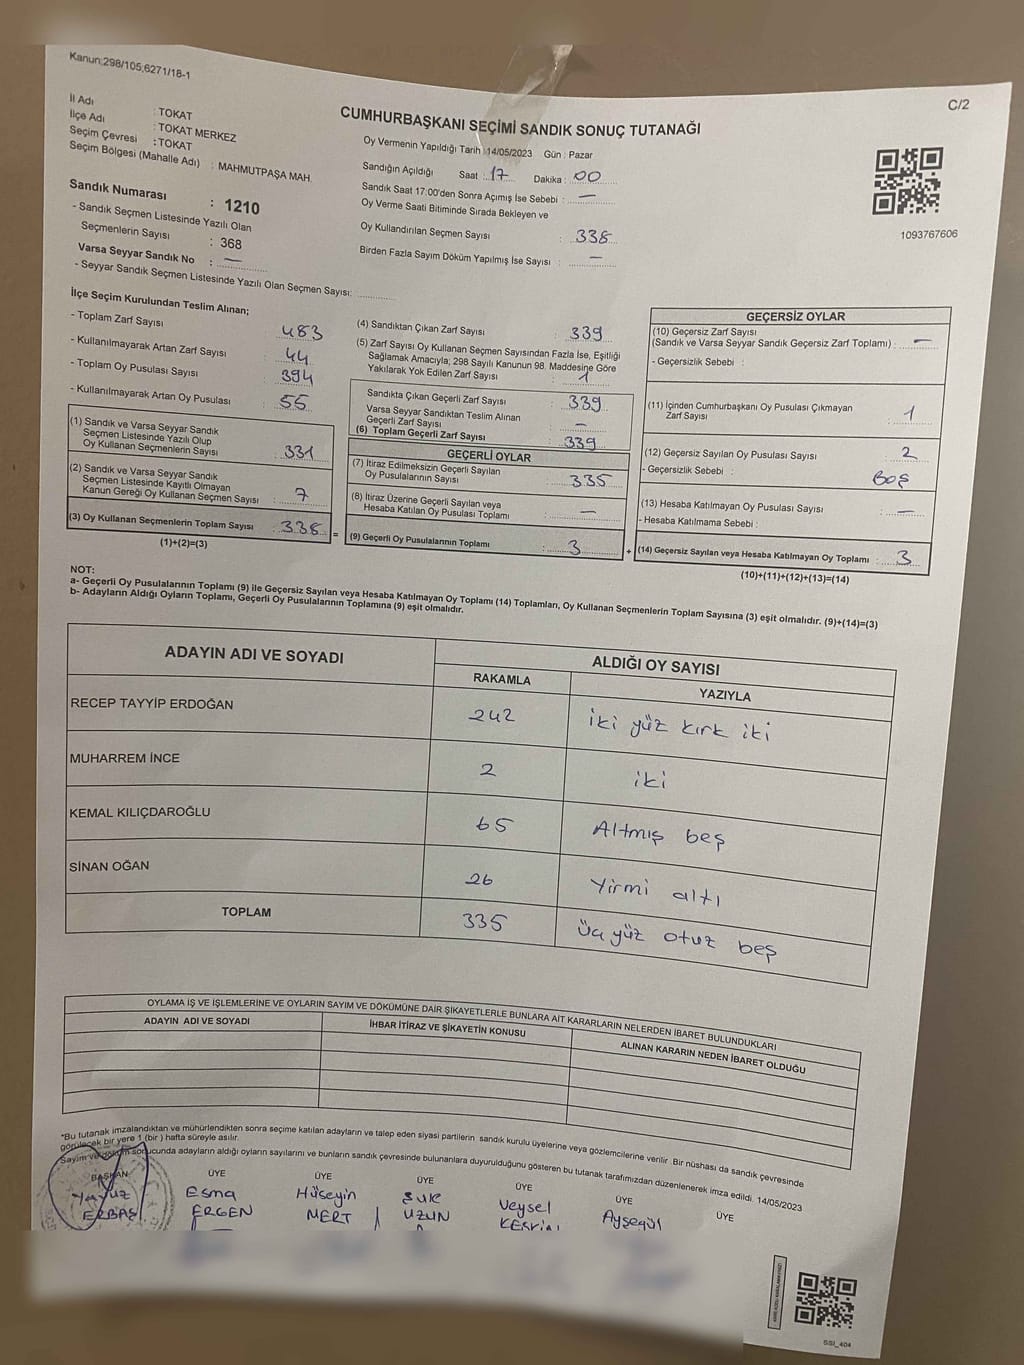 Kanun;298/105;6271/18-1
C/2
İl Adı : TOKAT
İlçe Adı : TOKAT MERKEZ
Seçim Çevresi : TOKAT
Seçim Bölgesi (Mahalle Adı) : MAHMUTPAŞA MAH.
CUMHURBAŞKANI SEÇİMİ SANDIK SONUÇ TUTANAĞI
Oy Vermenin Yapıldığı Tarih : 14/05/2023 Gün : Pazar
Sandığın Açıldığı Saat : 17 Dakika : 00
Sandık Saat 17:00'den Sonra Açımış İse Sebebi : —
Oy Verme Saati Bitiminde Sırada Bekleyen ve
Oy Kullandırılan Seçmen Sayısı : 338
Birden Fazla Sayım Döküm Yapılmış İse Sayısı : —
1093767606
Sandık Numarası : 1210
- Sandık Seçmen Listesinde Yazılı Olan
Seçmenlerin Sayısı : 368
Varsa Seyyar Sandık No : —
- Seyyar Sandık Seçmen Listesinde Yazılı Olan Seçmen Sayısı:
İlçe Seçim Kurulundan Teslim Alınan;
- Toplam Zarf Sayısı 483
- Kullanılmayarak Artan Zarf Sayısı 44
- Toplam Oy Pusulası Sayısı 394
- Kullanılmayarak Artan Oy Pusulası 55
(1) Sandık ve Varsa Seyyar Sandık
Seçmen Listesinde Yazılı Olup
Oy Kullanan Seçmenlerin Sayısı : 331
(2) Sandık ve Varsa Seyyar Sandık
Seçmen Listesinde Kayıtlı Olmayan
Kanun Gereği Oy Kullanan Seçmen Sayısı : 7
(3) Oy Kullanan Seçmenlerin Toplam Sayısı : 338 =
(1)+(2)=(3)
(4) Sandıktan Çıkan Zarf Sayısı : 339
(5) Zarf Sayısı Oy Kullanan Seçmen Sayısından Fazla İse, Eşitliği
Sağlamak Amacıyla; 298 Sayılı Kanunun 98. Maddesine Göre
Yakılarak Yok Edilen Zarf Sayısı : 1
Sandıkta Çıkan Geçerli Zarf Sayısı : 339
Varsa Seyyar Sandıktan Teslim Alınan
Geçerli Zarf Sayısı : —
(6) Toplam Geçerli Zarf Sayısı : 339
GEÇERLİ OYLAR
(7) İtiraz Edilmeksizin Geçerli Sayılan
Oy Pusulalarının Sayısı : 335
(8) İtiraz Üzerine Geçerli Sayılan veya
Hesaba Katılan Oy Pusulası Toplamı : —
(9) Geçerli Oy Pusulalarının Toplamı : 3 +
GEÇERSİZ OYLAR
(10) Geçersiz Zarf Sayısı
(Sandık ve Varsa Seyyar Sandık Geçersiz Zarf Toplamı) : —
- Geçersizlik Sebebi :
(11) İçinden Cumhurbaşkanı Oy Pusulası Çıkmayan
Zarf Sayısı : 1
(12) Geçersiz Sayılan Oy Pusulası Sayısı : 2
- Geçersizlik Sebebi : Boş
(13) Hesaba Katılmayan Oy Pusulası Sayısı : —
- Hesaba Katılmama Sebebi :
(14) Geçersiz Sayılan veya Hesaba Katılmayan Oy Toplamı : 3
(10)+(11)+(12)+(13)=(14)
NOT:
a- Geçerli Oy Pusulalarının Toplamı (9) ile Geçersiz Sayılan veya Hesaba Katılmayan Oy Toplamı (14) Toplamları, Oy Kullanan Seçmenlerin Toplam Sayısına (3) eşit olmalıdır. (9)+(14)=(3)
b- Adayların Aldığı Oyların Toplamı, Geçerli Oy Pusulalarının Toplamına (9) eşit olmalıdır.
ADAYIN ADI VE SOYADI ALDIĞI OY SAYISI
RAKAMLA YAZIYLA
RECEP TAYYİP ERDOĞAN 242 iki yüz kırk iki
MUHARREM İNCE 2 iki
KEMAL KILIÇDAROĞLU 65 Altmış beş
SİNAN OĞAN 26 Yirmi altı
TOPLAM 335 Üç yüz otuz beş
OYLAMA İŞ VE İŞLEMLERİNE VE OYLARIN SAYIM VE DÖKÜMÜNE DAİR ŞİKAYETLERLE BUNLARA AİT KARARLARIN NELERDEN İBARET BULUNDUKLARI
ADAYIN ADI VE SOYADI İHBAR İTİRAZ VE ŞİKAYETİN KONUSU ALINAN KARARIN NEDEN İBARET OLDUĞU
*Bu tutanak imzalandıktan ve mühürlendikten sonra seçime katılan adayların ve talep eden siyasi partilerin sandık kurulu üyelerine veya gözlemcilerine verilir. Bir nüshası da sandık çevresinde
görülecek bir yere 1 (bir) hafta süreyle asılır.
Sayım ve döküm sonucunda adayların aldığı oyların sayılarını ve bunların sandık çevresinde bulunanlara duyurulduğunu gösteren bu tutanak tarafımızdan düzenlenerek imza edildi. 14/05/2023
BAŞKAN ÜYE ÜYE ÜYE ÜYE ÜYE ÜYE
Yavuz Esma Hüseyin Şule Veysel Ayşegül
ERBAŞ ERGEN MERT UZUN
SSI_404